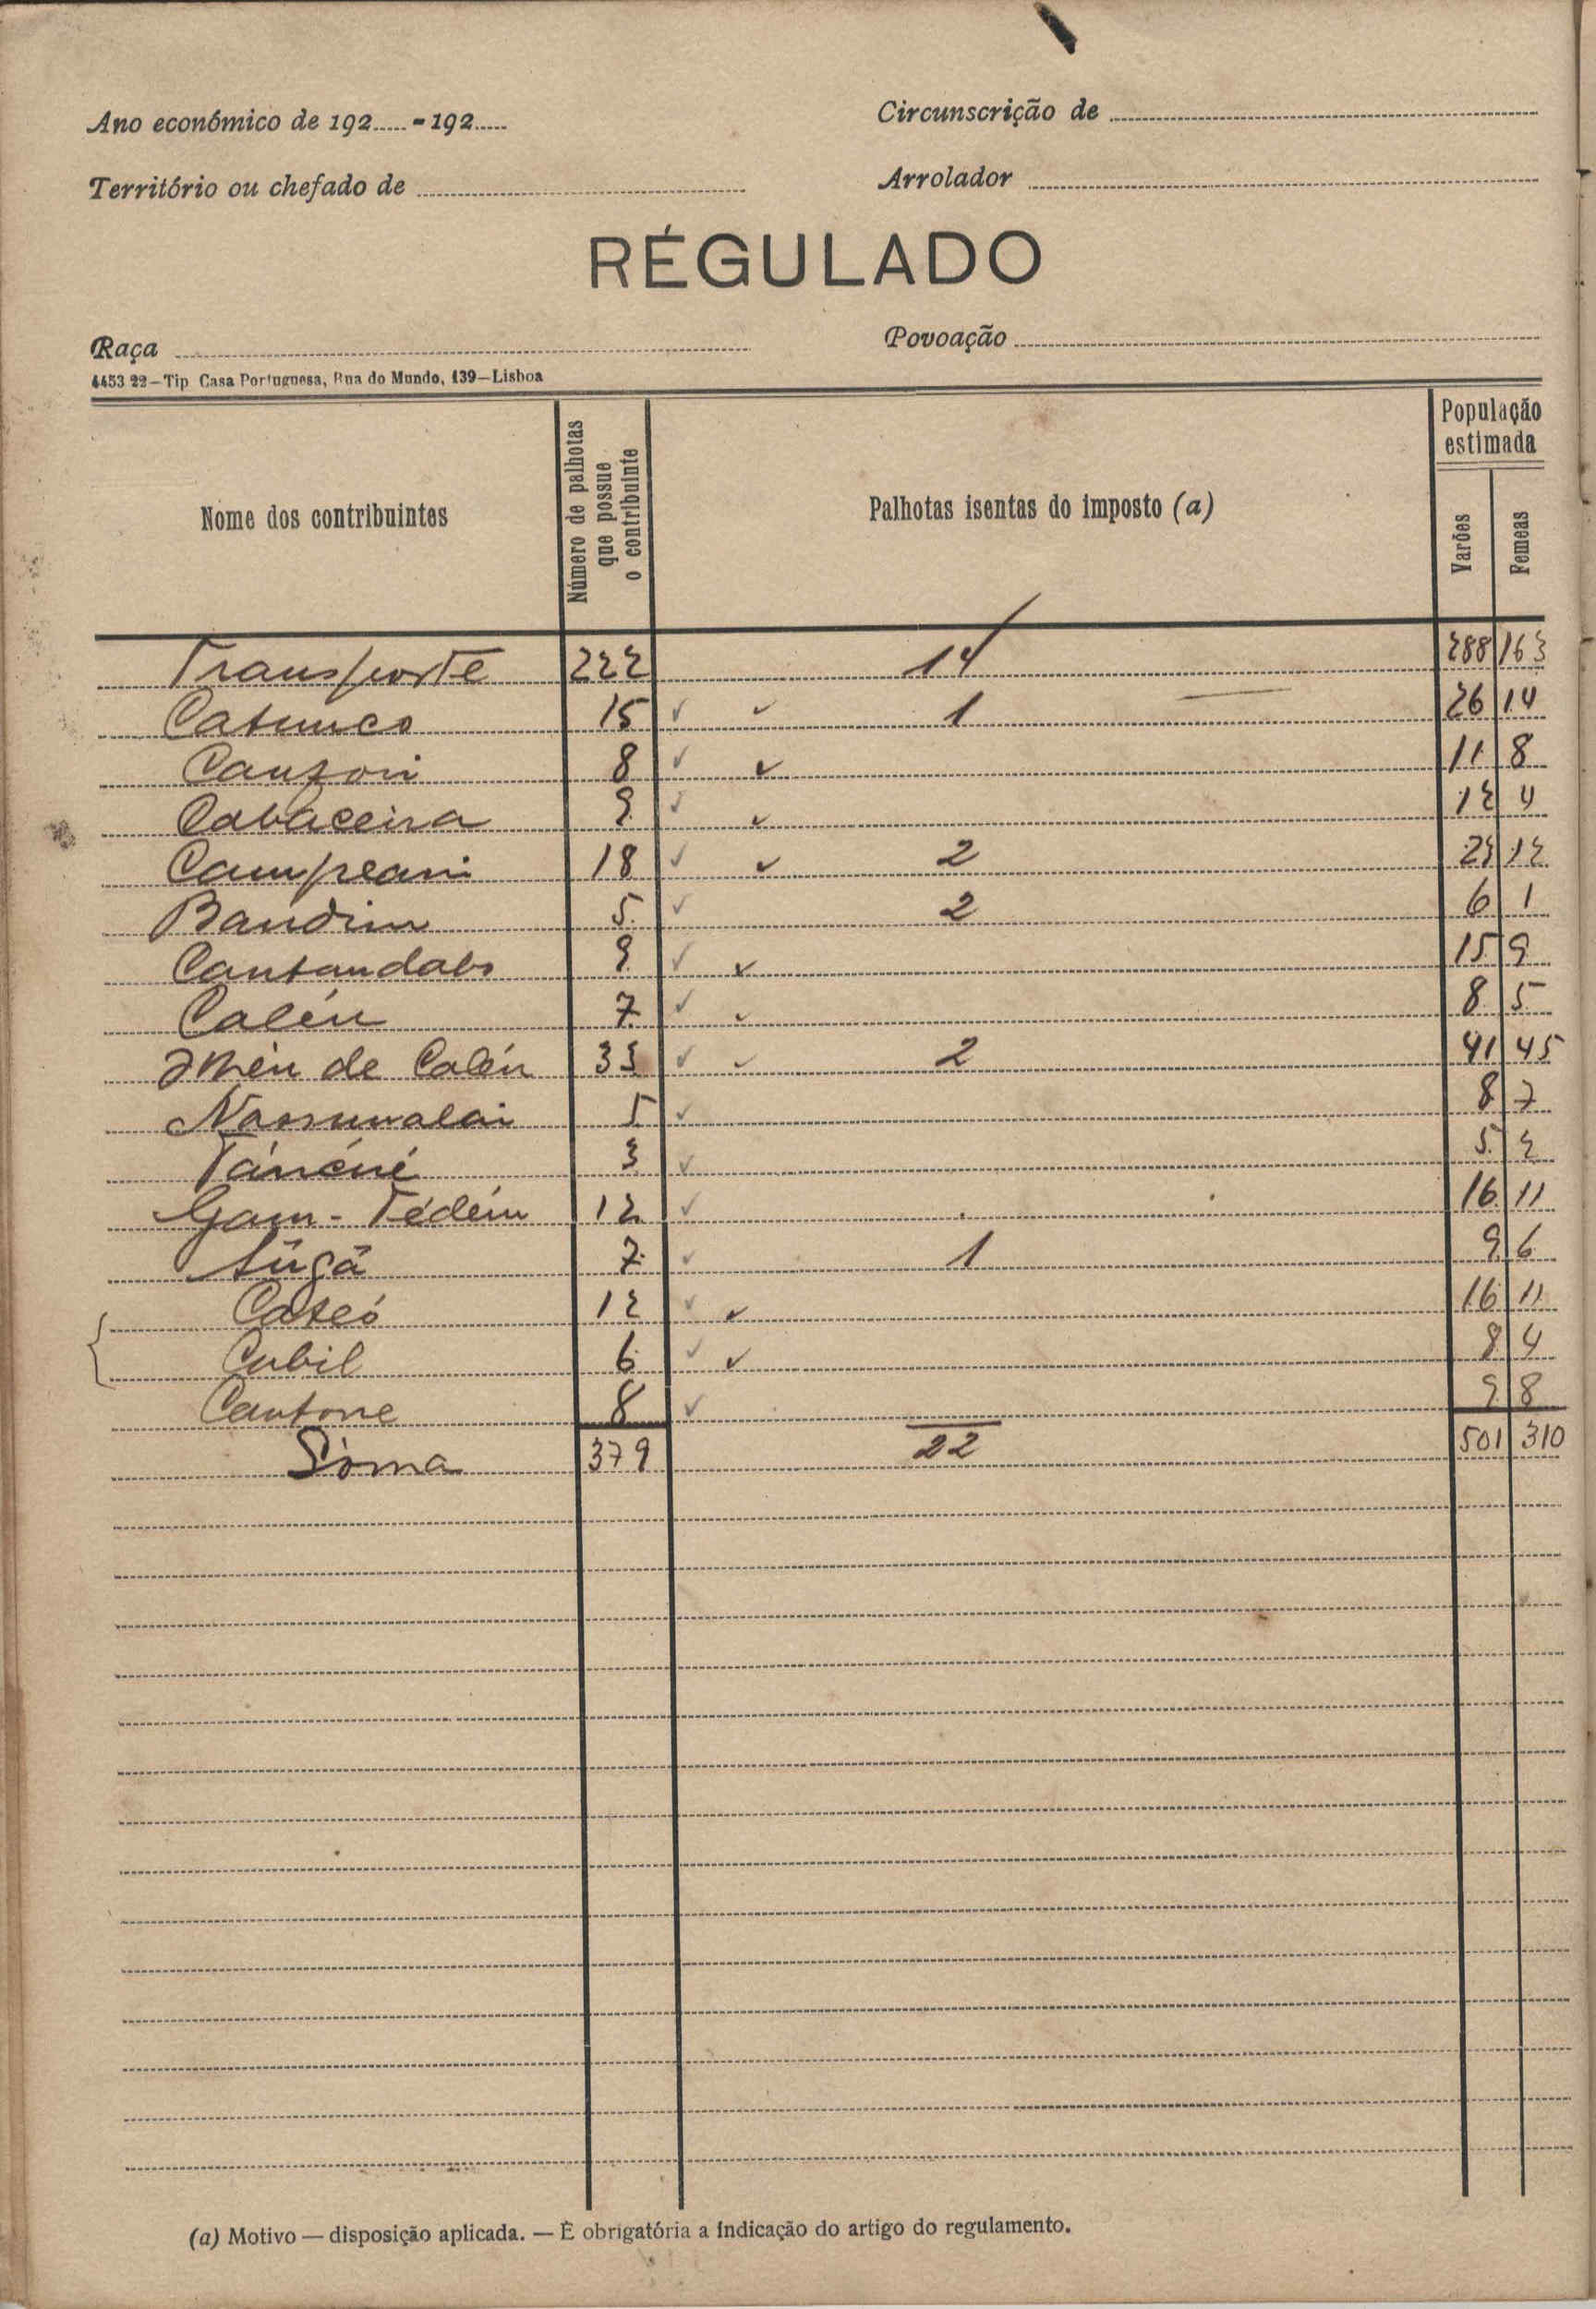 Ano económico de 192..... - 192..... Circunscrição de
Território ou chefado de Arrolador
RÉGULADO
Raça Povoação
4453 22—Tip Casa Portuguesa, Rua do Mundo, 139—Lisboa
Nome dos contribuintes Número de palhotas que possue o contribuinte Palhotas isentas do imposto (a) População estimada Varões Femeas
Transporte 222 14 288 163
Catunco 15 ✓ ✓ 1 26 14
8 ✓ ✓ 11 8
Cabaceira 9 ✓ ✓ 12 4
Campeani 18 ✓ ✓ 2 23 12
Bandim 5 ✓ 2 6 1
9 ✓ ✓ 15 9
Calén 7 ✓ ✓ 8 5
de Calén 33 ✓ ✓ 2 41 45
5 ✓ 8 7
3 ✓ 5 2
Gam-Tédém 12 ✓ 16 11
7 ✓ 1 9 6
Cateó 12 ✓ ✓ 16 11
Cubil 6 ✓ ✓ 8 4
Cantone 8 ✓ 9 8
Sòma 379 22 501 310
(a) Motivo — disposição aplicada. — È obrigatória a indicação do artigo do regulamento.